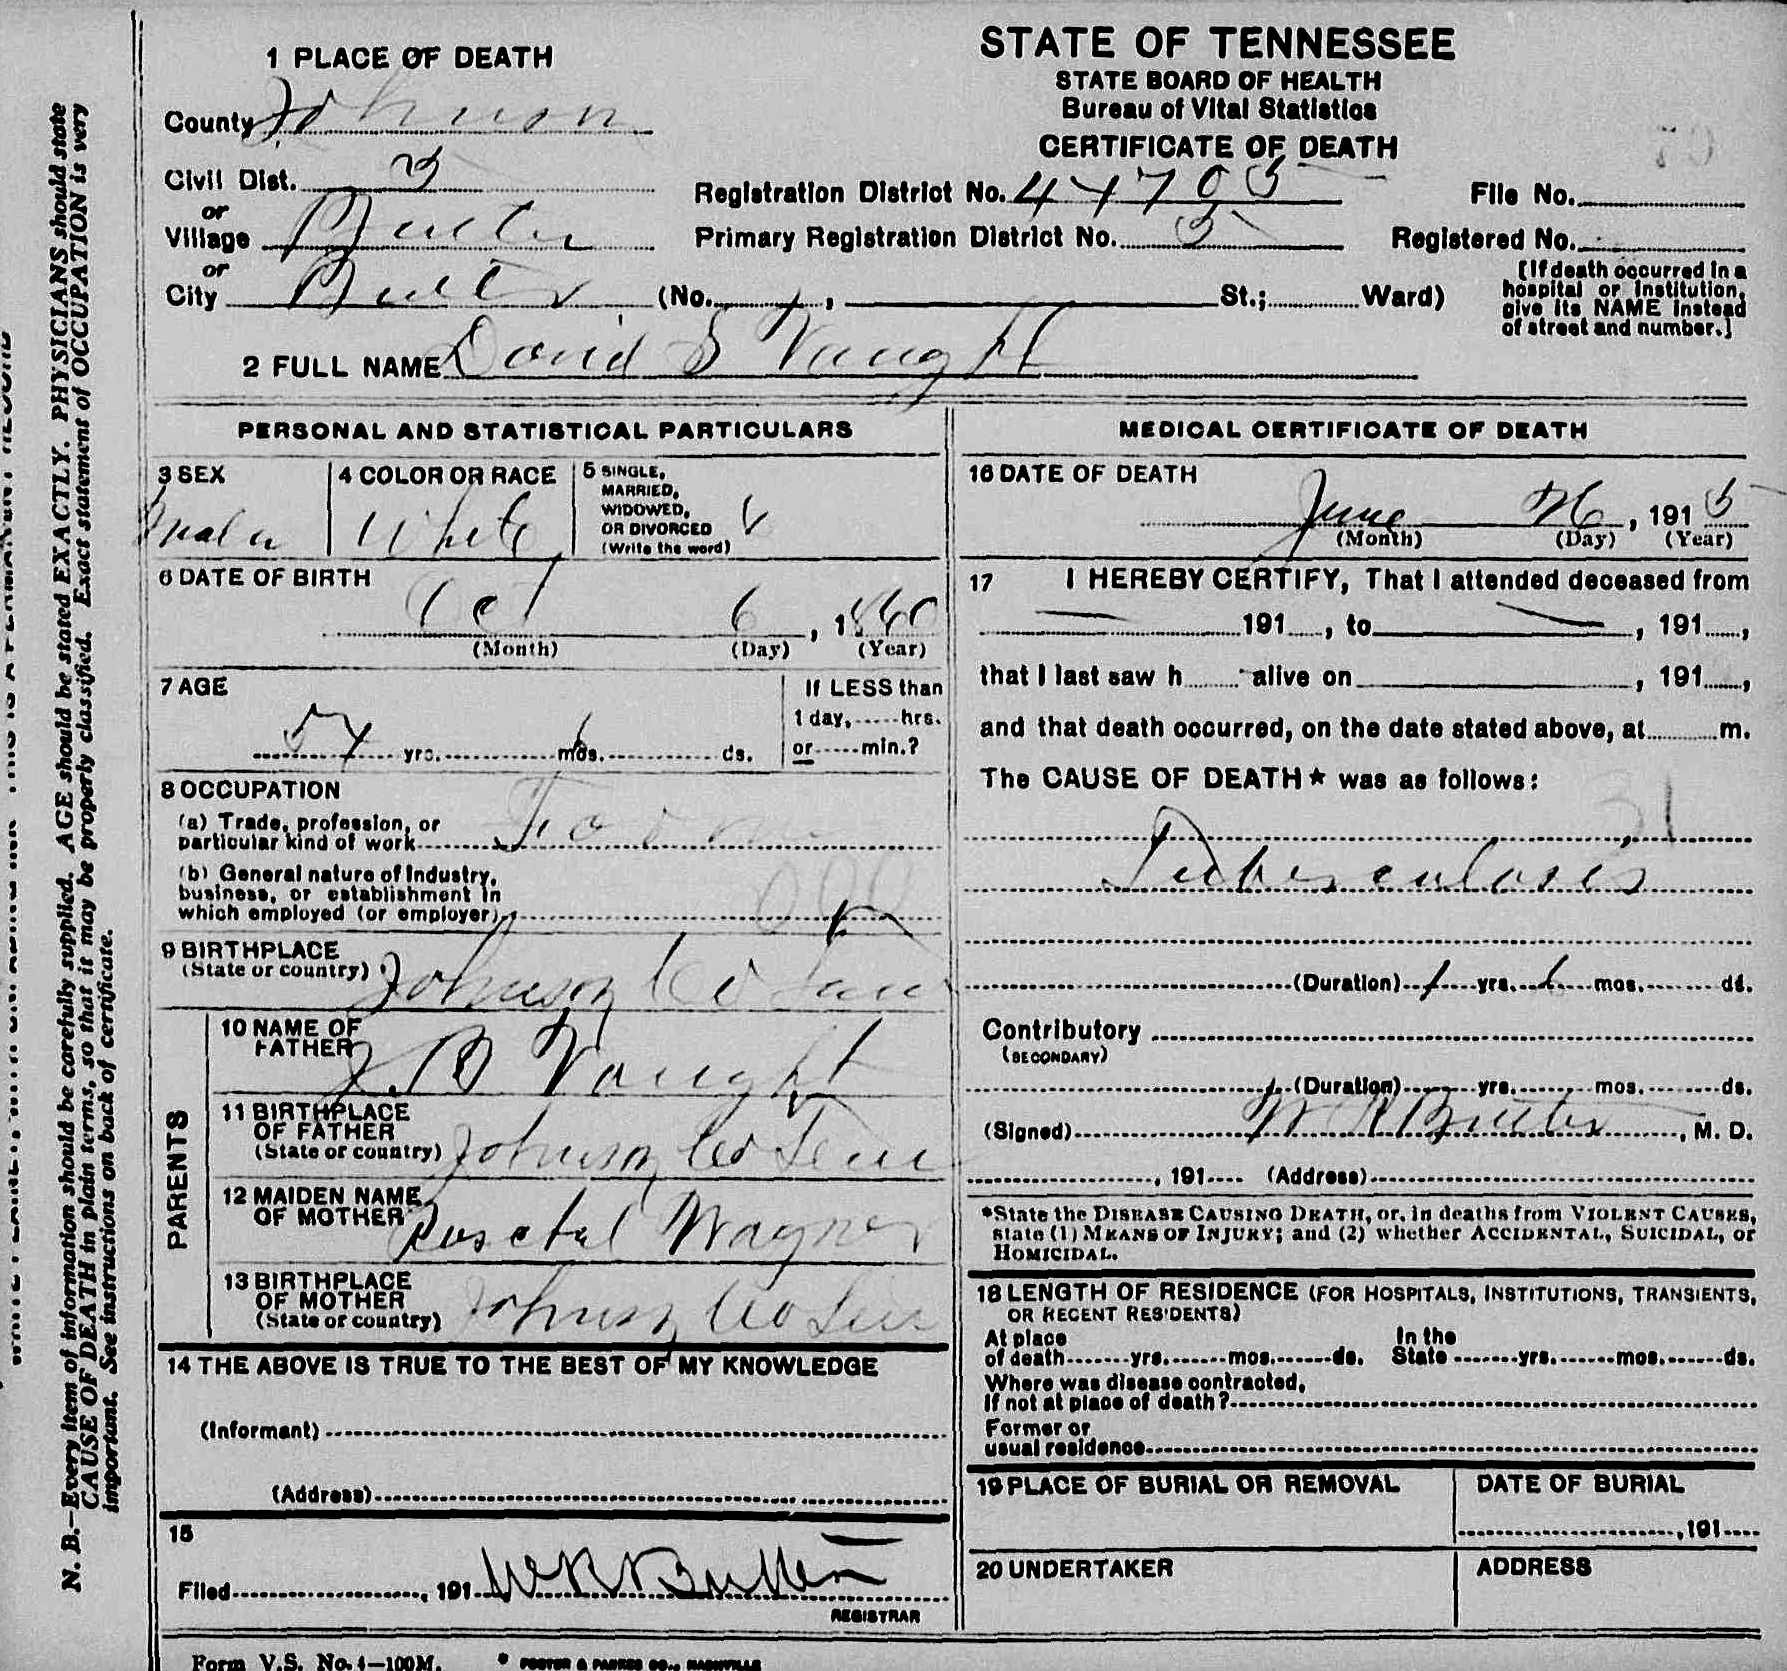 1 PLACE OF DEATH
County Johnson
Civil Dist. 3
or
Village Butler
or
City Butler (No. , St.; Ward)
STATE OF TENNESSEE
STATE BOARD OF HEALTH
Bureau of Vital Statistics
CERTIFICATE OF DEATH
Registration District No. 44705
File No.
Primary Registration District No. 5
Registered No.
[If death occurred in a
hospital or institution,
give its NAME instead
of street and number.]
2 FULL NAME David S Vaught
PERSONAL AND STATISTICAL PARTICULARS
3 SEX
Male
4 COLOR OR RACE
White
5 SINGLE,
MARRIED,
WIDOWED,
OR DIVORCED
(Write the word)
6 DATE OF BIRTH
Oct 6, 1860
(Month) (Day) (Year)
7 AGE
54 yrs. mos. ds.
If LESS than
1 day, hrs.
or min.?
8 OCCUPATION
(a) Trade, profession, or
particular kind of work
(b) General nature of Industry,
business, or establishment in
which employed (or employer)
9 BIRTHPLACE
(State or country) Johnson Co Tenn
PARENTS
10 NAME OF
FATHER J. B Vaught
11 BIRTHPLACE
OF FATHER
(State or country) Johnson Co Tenn
12 MAIDEN NAME
OF MOTHER Wagner
13 BIRTHPLACE
OF MOTHER
(State or country) Johnson Co Tenn
14 THE ABOVE IS TRUE TO THE BEST OF MY KNOWLEDGE
(Informant)
(Address)
15
Filed , 191 W R Butler
REGISTRAR
MEDICAL CERTIFICATE OF DEATH
16 DATE OF DEATH
June 26, 1915
(Month) (Day) (Year)
17 I HEREBY CERTIFY, That I attended deceased from
191 , to , 191 ,
that I last saw h alive on , 191 ,
and that death occurred, on the date stated above, at m.
The CAUSE OF DEATH* was as follows:
31
Tuberculosis
(Duration) 1 yrs. 6 mos. ds.
Contributory
(SECONDARY)
(Duration) yrs. mos. ds.
(Signed) W R Butler, M. D.
, 191 (Address)
*State the DISEASE CAUSING DEATH, or, in deaths from VIOLENT CAUSES,
state (1) MEANS OF INJURY; and (2) whether ACCIDENTAL, SUICIDAL, or
HOMICIDAL.
18 LENGTH OF RESIDENCE (FOR HOSPITALS, INSTITUTIONS, TRANSIENTS,
OR RECENT RESIDENTS)
At place
of death yrs. mos. ds.
In the
State yrs. mos. ds.
Where was disease contracted,
If not at place of death?
Former or
usual residence
19 PLACE OF BURIAL OR REMOVAL
DATE OF BURIAL
, 191
20 UNDERTAKER
ADDRESS
Form V.S. No. 4—100M.
* FOSTER & PARKES CO., NASHVILLE
N. B.—Every item of information should be carefully supplied. AGE should be stated EXACTLY. PHYSICIANS should state
CAUSE OF DEATH in plain terms, so that it may be properly classified. Exact statement of OCCUPATION is very
important. See instructions on back of certificate.